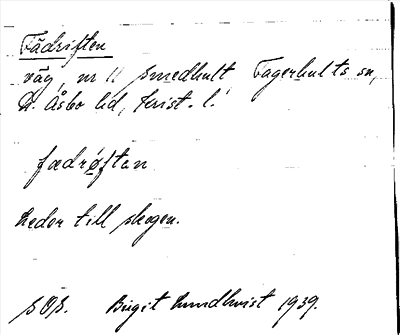 Fädriften
väg, nr 11 Smedhult Fagerhults sn,
N. Åsbo hd, Krist. l.
fædrøftan
Leder till skogen.
SOS. Birgit Lundkvist 1939.